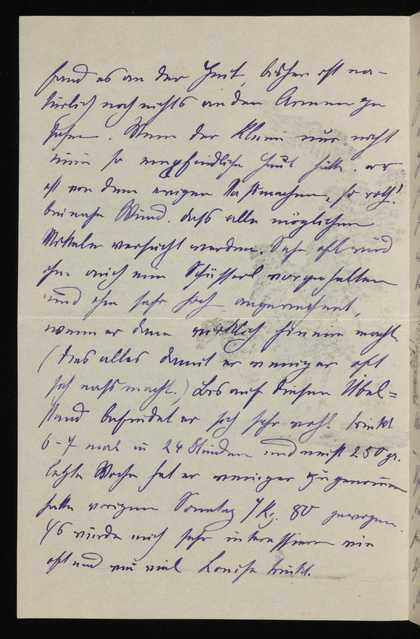 fand es an der Zeit, bisher ist na-
türlich noch nichts an den Armen zu
sehen. Wenn der Kleine nur nicht
eine so empfindliche Haut hätte. er
ist von dem ewigen Naßmachen, so roth!
beinahe Wund. daß alle möglichen
Mittel versucht werden. Sehr oft wird
ihm auch ein Schüsserl vorgehalten
und ihm sehr hoch angerechnet,
wenn er dann wirklich hinein macht
(dies alles damit er weniger oft
sich naß macht.) Bis auf diesen Übel=
stand befindet er sich sehr wohl trinkt
6-7 mal in 24 Stunden und meist 250 gr.
letzte Woche hat er weniger zugenommen
hatte vorigen Sonntag 7 Kg. 80 gewogen.
Es würde mich sehr interessieren wie
oft und wie viel Louise trinkt.